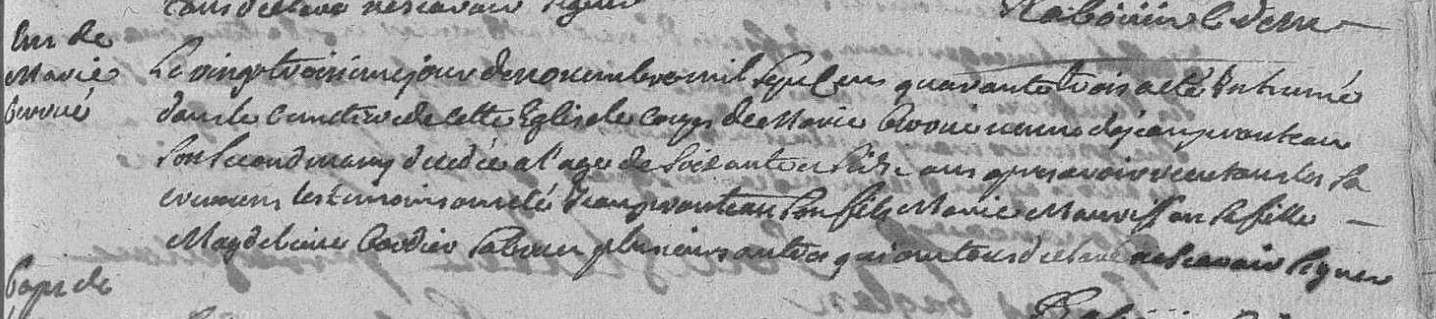 tous declaré ne scavoir signer
Rabouin c. d. m.
En. de
Marie
Le vingt troisieme jour de novembre mil sept cens quarante trois a eté Inhumé
dans le cimetiere de cette Eglise le corps de Marie veuve de jean pronteau
son second mary decedée a l'age de soixante et seize ans apres avoir receu tous les sa
cremens les temoins ont eté jean pronteau son fils Marie Mauriss on sa fille
Magdelaine Cordier sa bru plusieurs autres qui ont tous declaré ne scavoir signer
Bapt. de